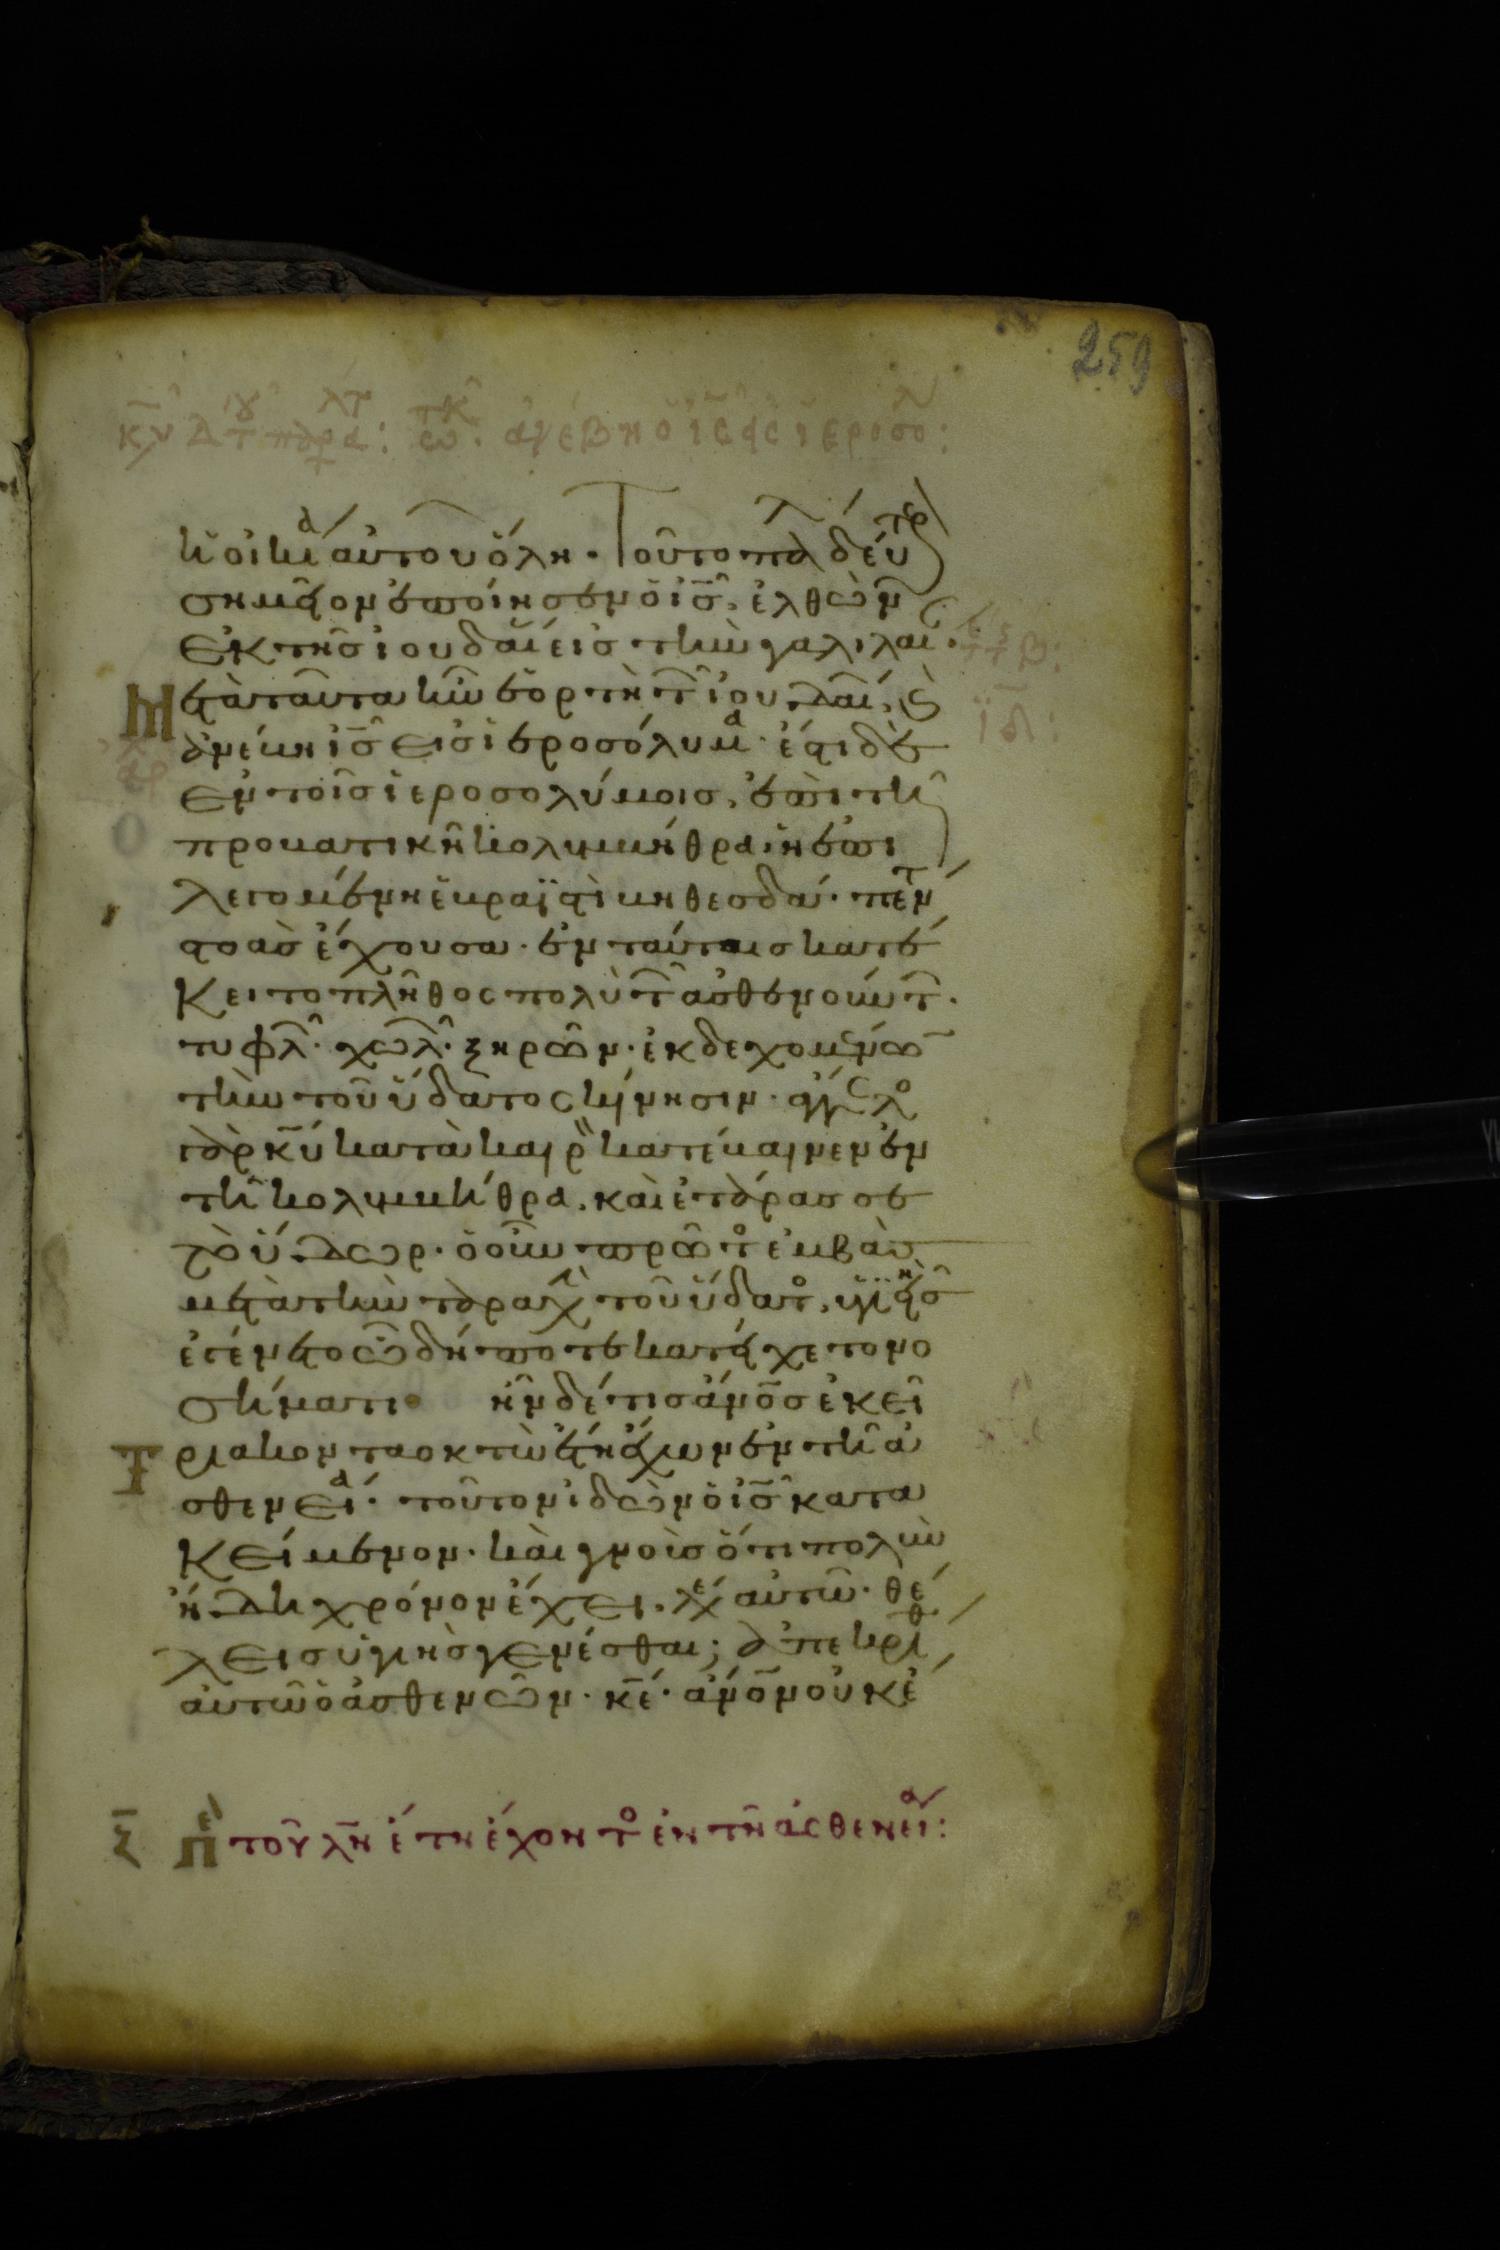 259
ἡ οἰκία αὐτοῦ ὅλη. Τοῦτο παλ δεύτερ
σημεῖον ἐποίησεν ὁ ἰς, ἐλθὼν
ἐκ τῆς ἰουδαί εἰς τὴν γαλιλαί.
Μετὰ ταῦτα ἦν ἑορτὴ τῶν ἰουδαί, καὶ
ἀνέβη ἰς εἰς ἱεροσόλυμα. ἔστι δὲ
ἐν τοῖς ἱεροσολύμοις, ἐπὶ τῇ
προβατικῇ κολυμβήθρα, ἡ ἐπι
λεγομένη ἑβραϊστὶ βηθεσδά. πέντ
στοὰς ἔχουσα. ἐν ταύταις κατέ
κειτο πλῆθος πολὺ τῶν ἀσθενούντ.
τυφλ. χωλ. ξηρῶν. ἐκδεχομένων
τὴν τοῦ ὕδατος κίνησιν. ἄγγελο
γὰρ κυ κατὰ καιρ κατέβαινεν ἐν
τῇ κολυμβήθρα, καὶ ἐτάρασσε
τὸ ὕδωρ. ὁ οὖν πρῶτο ἐμβὰς
μετὰ τὴν ταραχὴ τοῦ ὕδατο, ὑγιὴς
ἐγένετο ὧ δήποτε κατείχετο νο
σήματι. ἦν δέ τις ἄνος ἐκεῖ
Τριακονταοκτὼ ἔτη ἔχων ἐν τῇ ἀ
σθενεία. τοῦτον ἰδὼν ὁ ἰς κατα
κείμενον. καὶ γνοὺς ὅτι πολὺν
ἤδη χρόνον ἔχει. λέγει αὐτῶ. θέ
λεις ὑγιὴς γενέσθαι; ἀπεκρίθ
αὐτῶ ὁ ἀσθενῶν. κε. ἄνον οὐκ ἔ
ζ πε τοῦ λη ἔτη ἔχοντο ἐν τῇ ἀσθενεία: